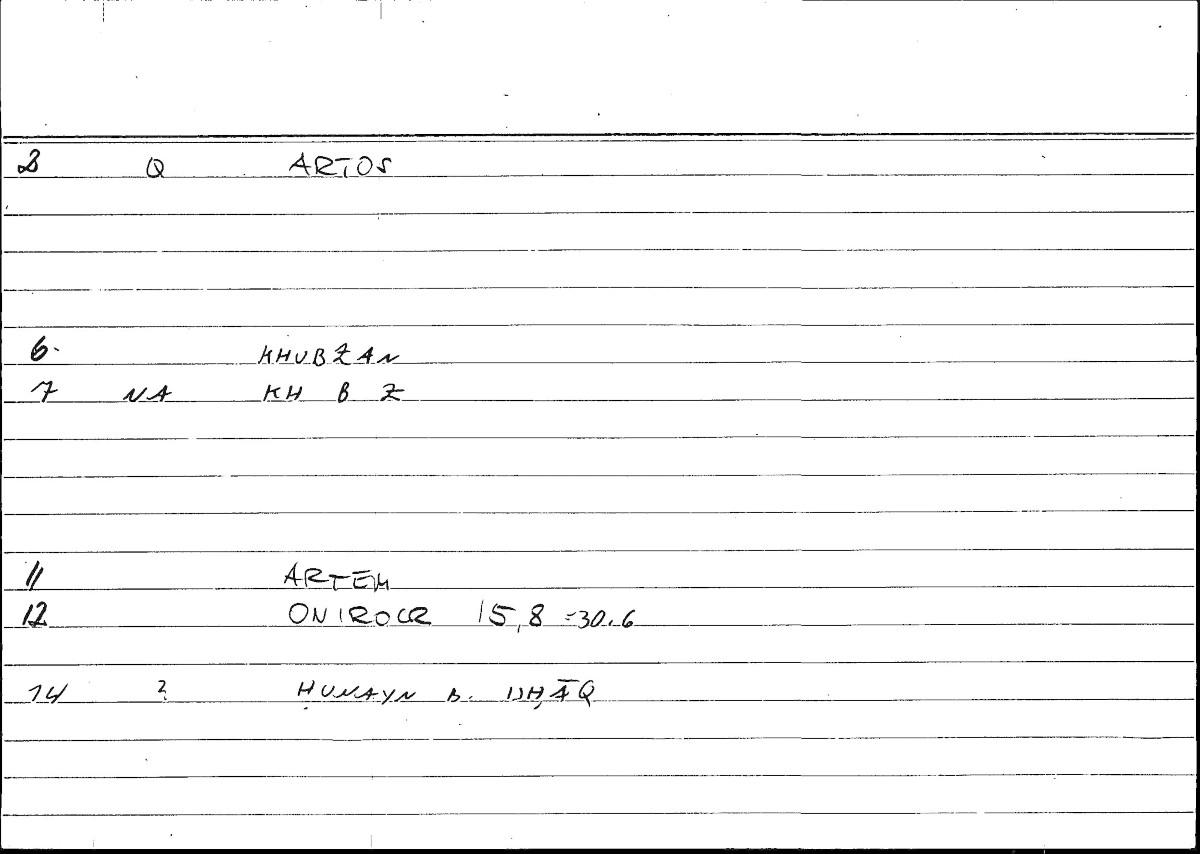 2 Q ARTOS
6. KHUBZAN
7 NA KH B Z
11 ARTEM
12 ONIROCR 15,8 =30.6
14 ? ḤUNAYN B. ISḤĀQ